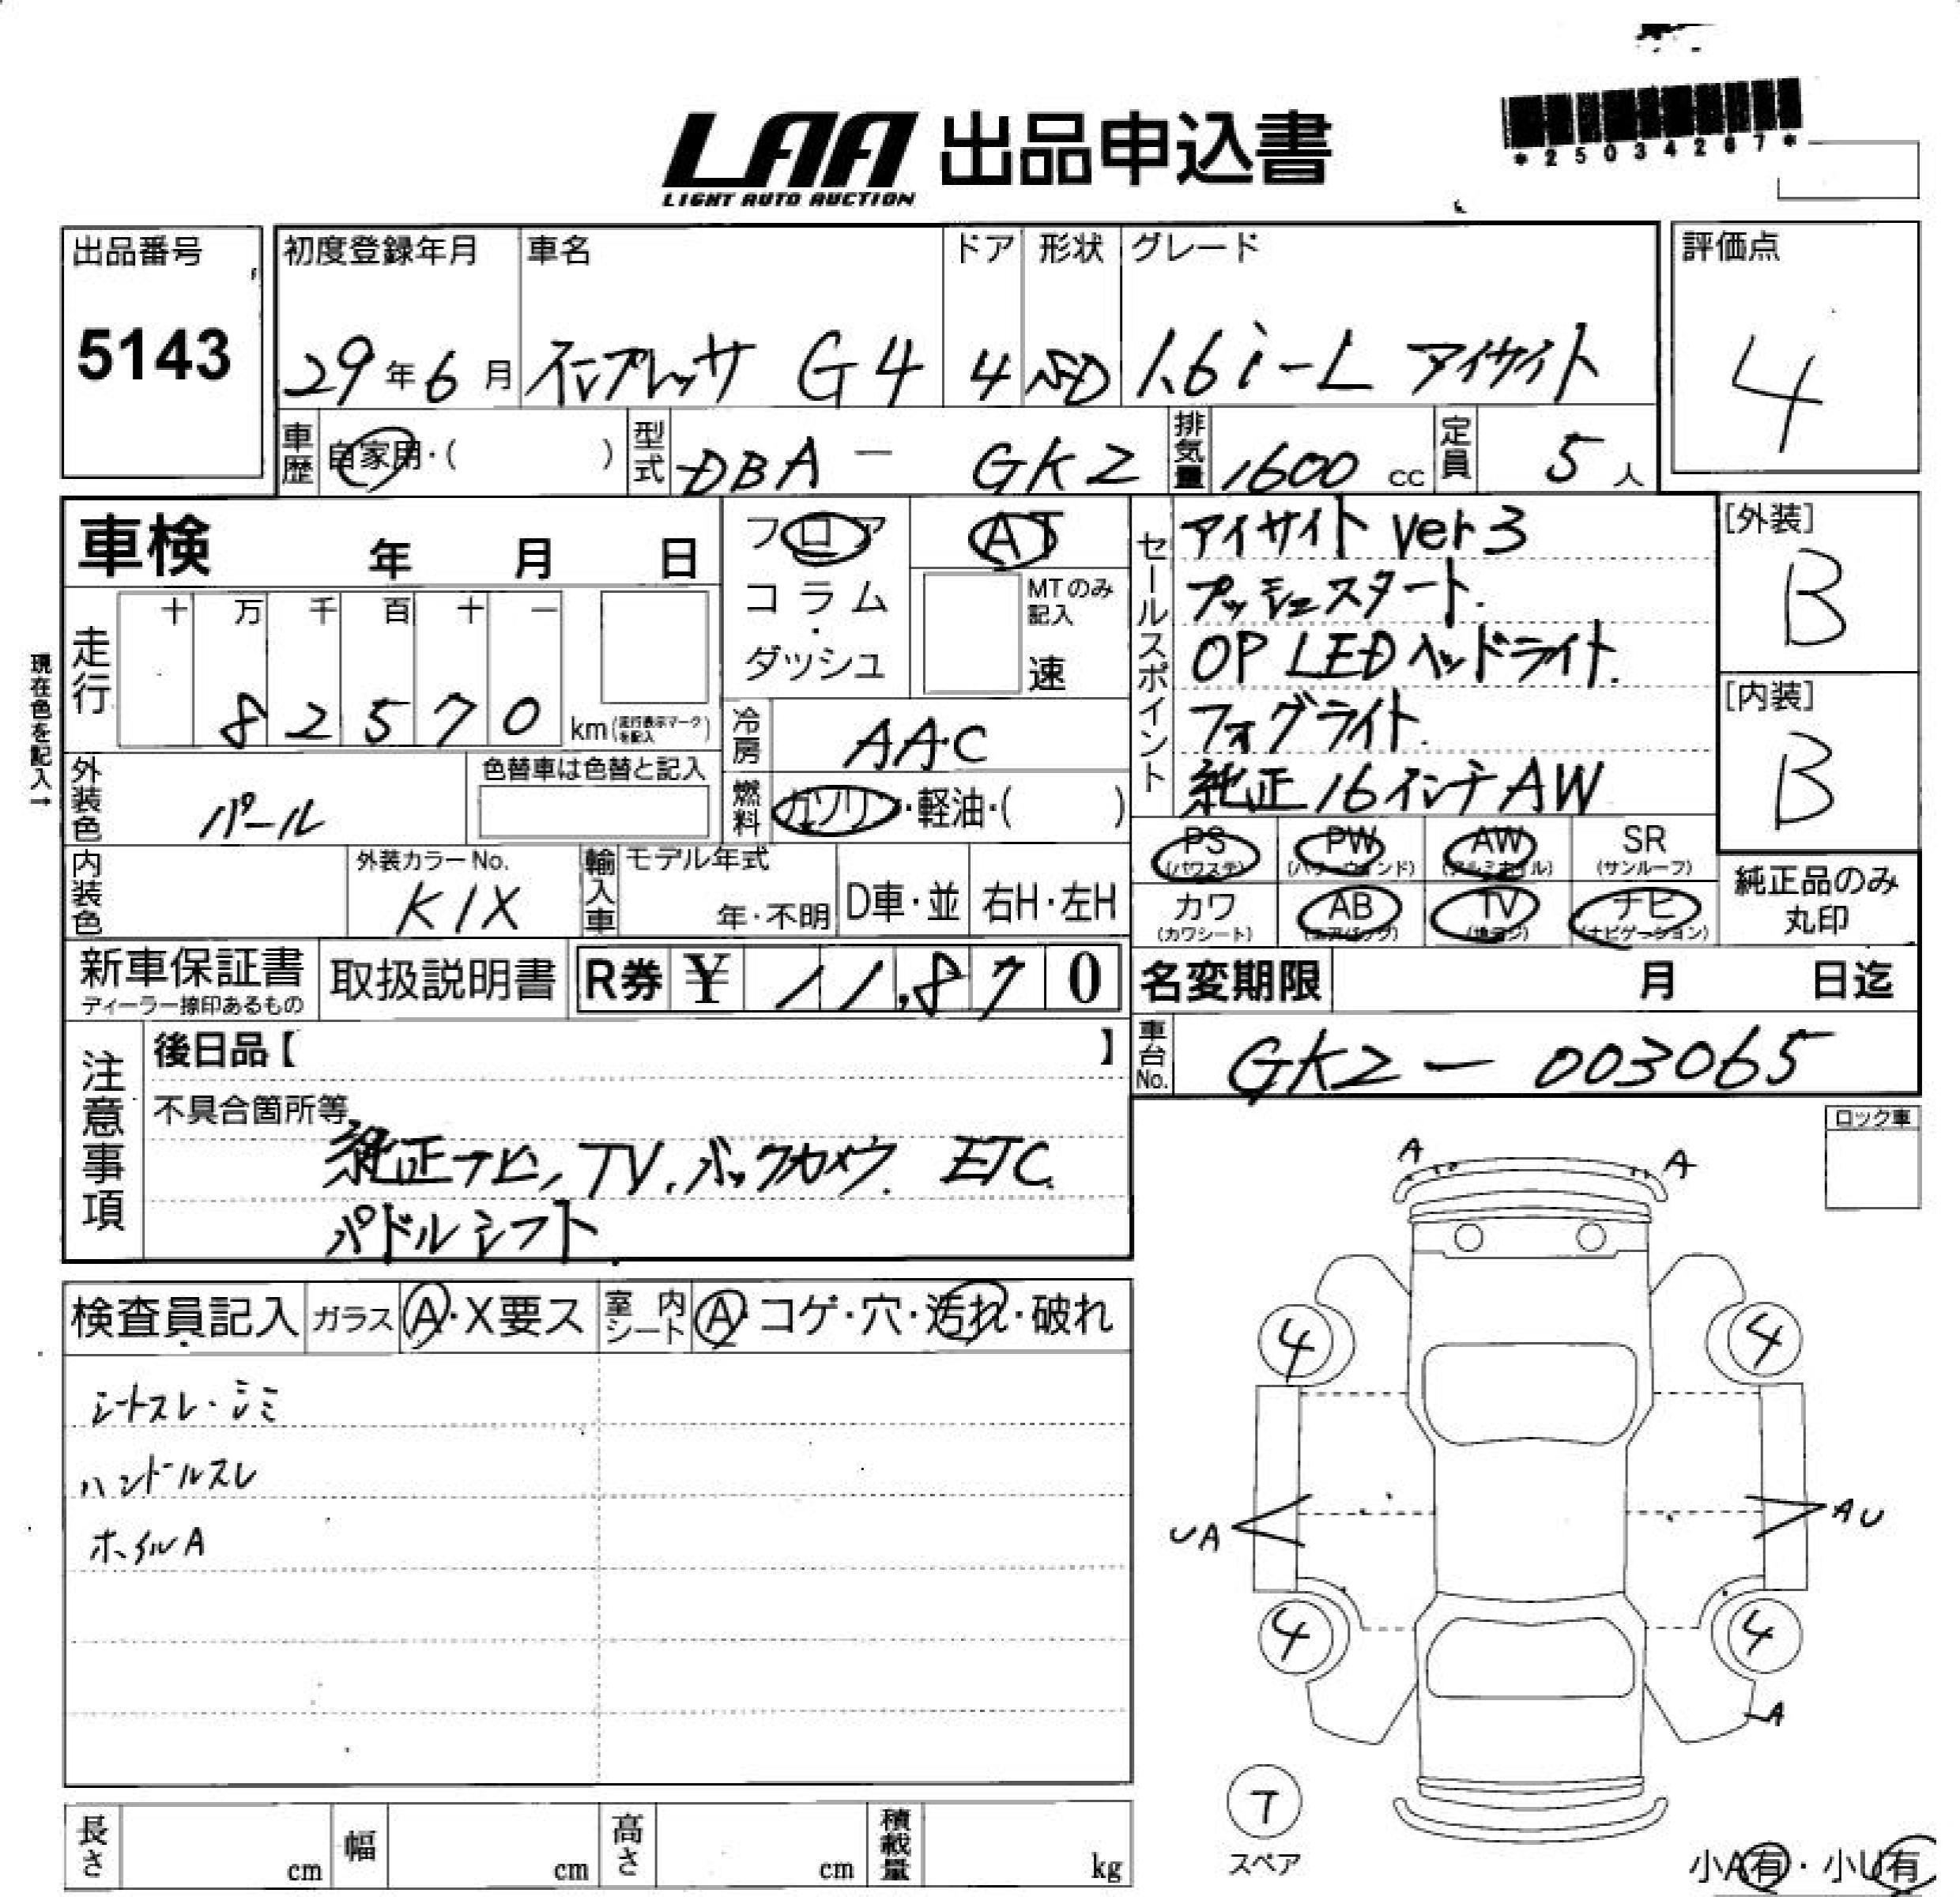 *25034267*
LAA 出品申込書
LIGHT AUTO AUCTION
出品番号
5143
初度登録年月
29年6月
車名
インプレッサ G4
ドア
4
形状
SD
グレード
1.6i-L アイサイト
評価点
4
車歴 自家用・( )
型式 DBA - GK2
排気量 1600 cc
定員 5人
車検 年 月 日
フロア
コラム・ダッシュ
AT
MTのみ記入
速
セールスポイント
アイサイト ver3
プッシュスタート.
OP LEDヘッドライト.
フォグライト.
純正16インチAW
[外装]
B
[内装]
B
現在色を記入→
走行
十 万 千 百 十 一
8 2 5 7 0 km(走行表示マークを記入)
冷房 AAC
外装色 パール
色替車は色替と記入
燃料 ガソリン・軽油・( )
PS (パワステ)
PW (パワーウィンド)
AW (アルミホイル)
SR (サンルーフ)
カワ (カワシート)
AB (エアバッグ)
TV (地デジ)
ナビ (ナビゲーション)
純正品のみ丸印
内装色
外装カラーNo.
K1X
輸入車
モデル年式
年・不明
D車・並
右H・左H
新車保証書
ディーラー捺印あるもの
取扱説明書
R券 ¥ 11,870
名変期限 月 日迄
車台No. GK2 - 003065
注意事項
後日品【 】
不具合箇所等
純正ナビ, TV, バックカメラ. ETC.
パドルシフト
ロック車
検査員記入
ガラス A・X要ス
室内シート A・コゲ・穴・汚れ・破れ
シートスレ・シミ
ハンドルスレ
ホイルA
A
A
4
4
UA
AU
4
4
A
T
スペア
小A有・小U有
長さ cm
幅 cm
高さ cm
積載量 kg